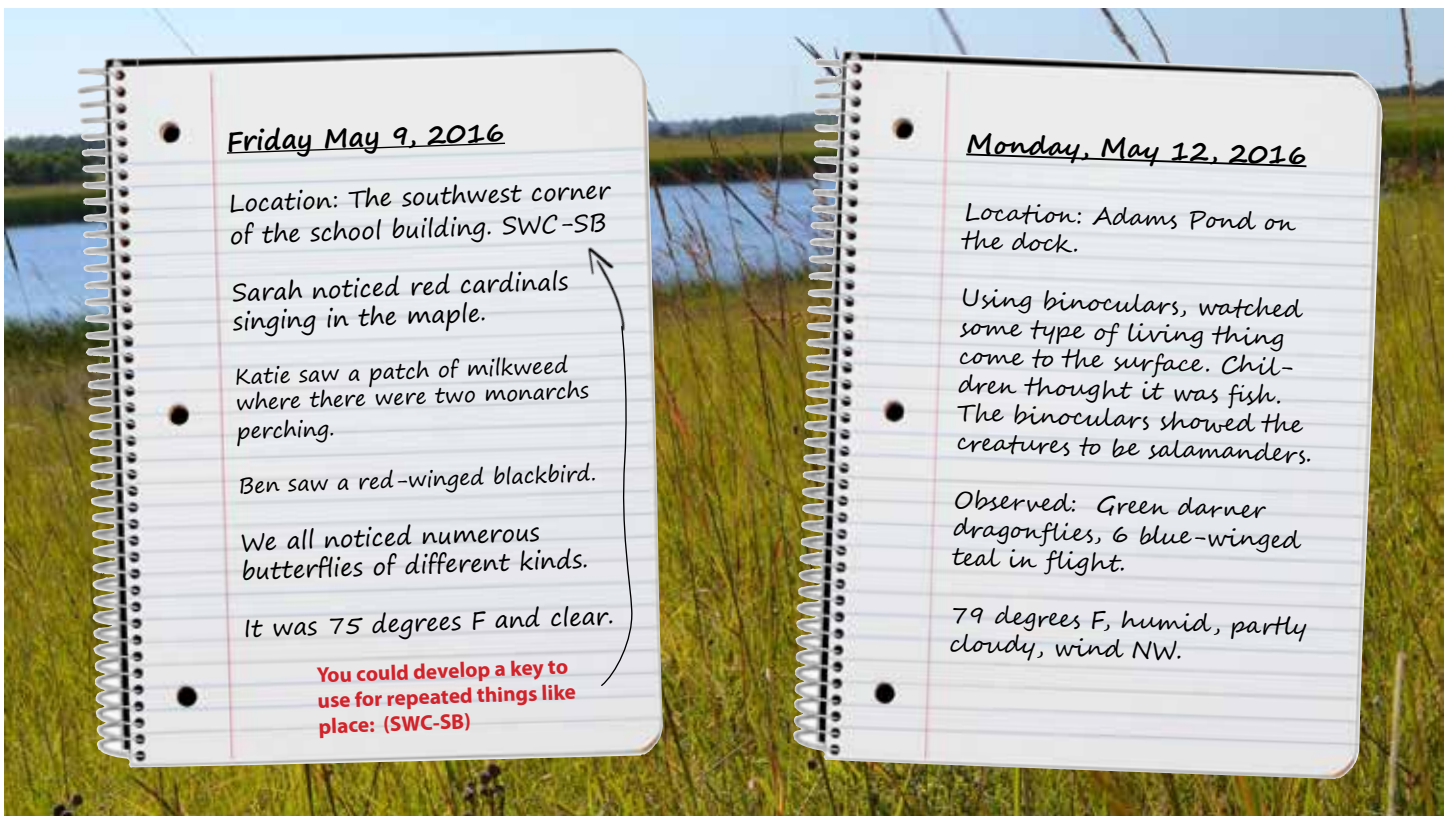 Friday May 9, 2016
Location: The southwest corner
of the school building. SWC-SB
Sarah noticed red cardinals
singing in the maple.
Katie saw a patch of milkweed
where there were two monarchs
perching.
Ben saw a red-winged blackbird.
We all noticed numerous
butterflies of different kinds.
It was 75 degrees F and clear.
You could develop a key to
use for repeated things like
place: (SWC-SB)
Monday, May 12, 2016
Location: Adams Pond on
the dock.
Using binoculars, watched
some type of living thing
come to the surface. Chil-
dren thought it was fish.
The binoculars showed the
creatures to be salamanders.
Observed: Green darner
dragonflies, 6 blue-winged
teal in flight.
79 degrees F, humid, partly
cloudy, wind NW.